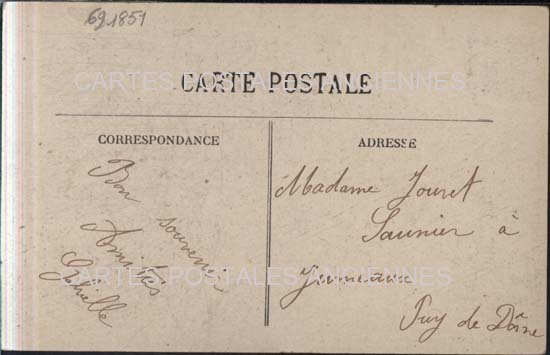 691851
CARTE POSTALE
CARTES POSTALES ANCIENNES
CORRESPONDANCE
ADRESSE
Bon souvenir
Amitiés
Madame Jouret
Saunier à
Jumeaux
Puy de Dôme
CARTES POSTALES ANCIENNES